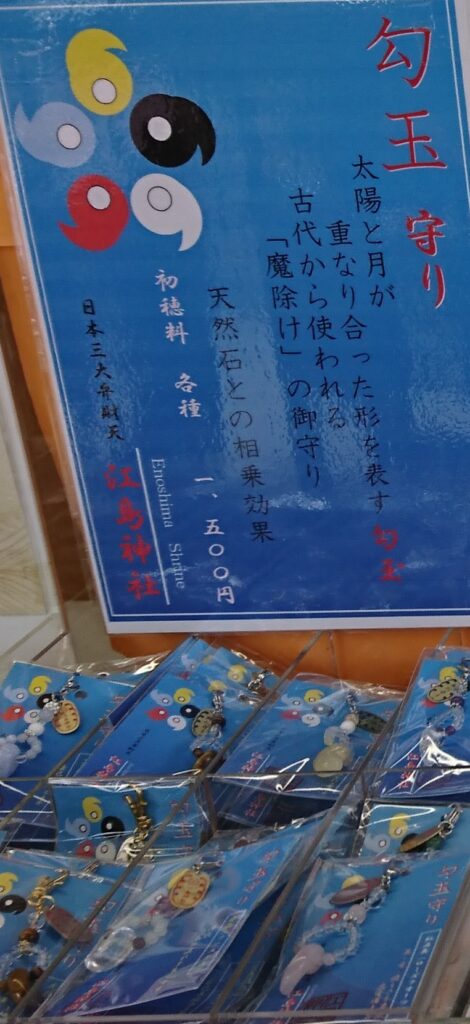 勾玉守り
太陽と月が
重なり合った形を表す勾玉
古代から使われる
「魔除け」の御守り
天然石との相乗効果
初穂料 各種 一、五〇〇円
日本三大弁財天
江島神社
Enoshima Shrine
勾玉守り
勾玉守り